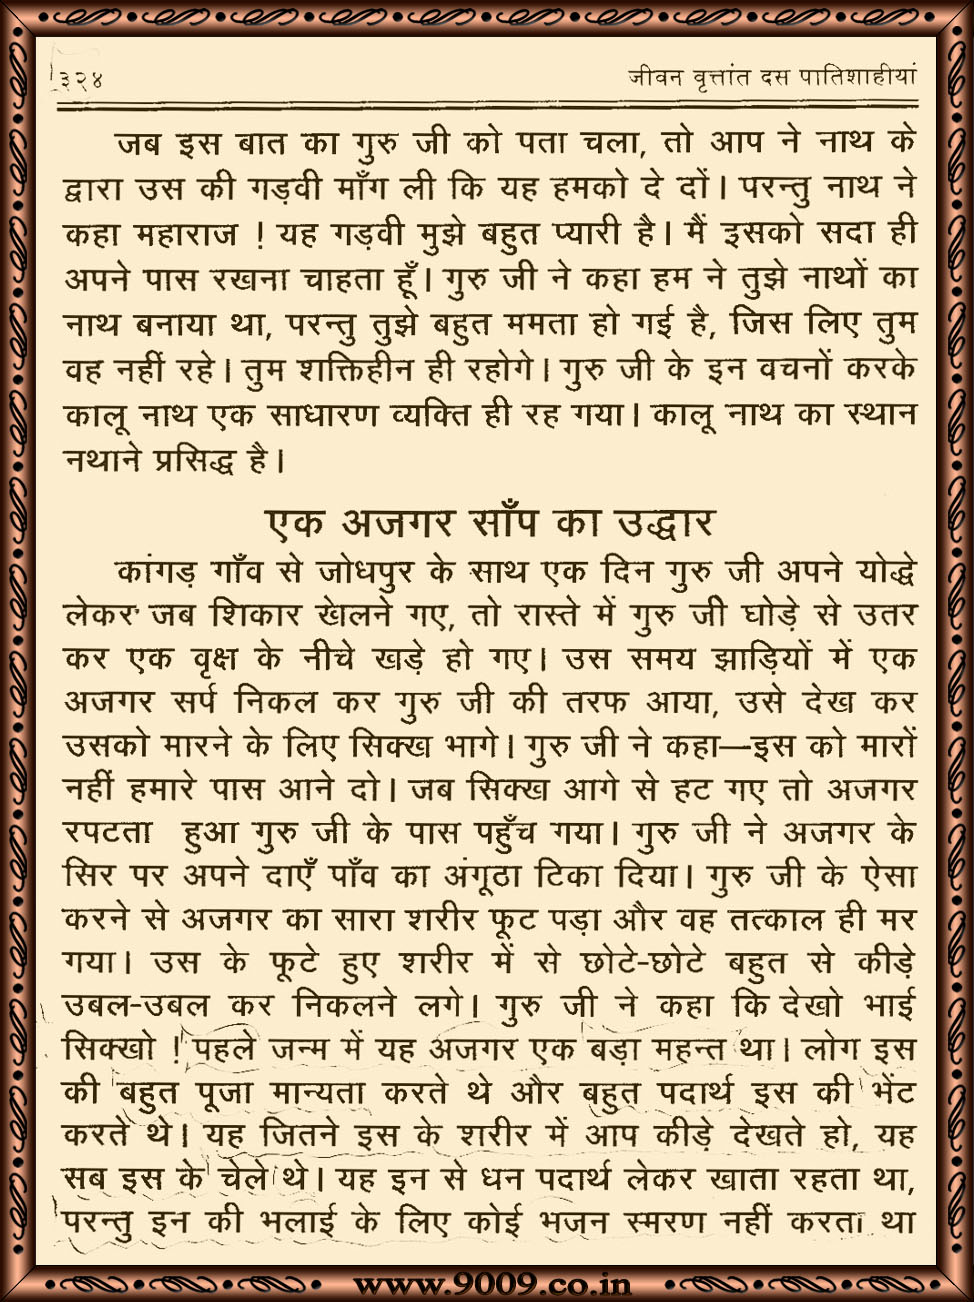 ३२४ जीवन वृत्तांत दस पातिशाहीयां
जब इस बात का गुरु जी को पता चला, तो आप ने नाथ के
द्वारा उस की गड़वी माँग ली कि यह हमको दे दों। परन्तु नाथ ने
कहा महाराज ! यह गड़वी मुझे बहुत प्यारी है। मैं इसको सदा ही
अपने पास रखना चाहता हूँ। गुरु जी ने कहा हम ने तुझे नाथों का
नाथ बनाया था, परन्तु तुझे बहुत ममता हो गई है, जिस लिए तुम
वह नहीं रहे। तुम शक्तिहीन ही रहोगे। गुरु जी के इन वचनों करके
कालू नाथ एक साधारण व्यक्ति ही रह गया। कालू नाथ का स्थान
नथाने प्रसिद्ध है।
एक अजगर साँप का उद्धार
कांगड़ गाँव से जोधपुर के साथ एक दिन गुरु जी अपने योद्धे
लेकर जब शिकार खेलने गए, तो रास्ते में गुरु जी घोड़े से उतर
कर एक वृक्ष के नीचे खड़े हो गए। उस समय झाड़ियों में एक
अजगर सर्प निकल कर गुरु जी की तरफ आया, उसे देख कर
उसको मारने के लिए सिक्ख भागे। गुरु जी ने कहा—इस को मारों
नहीं हमारे पास आने दो। जब सिक्ख आगे से हट गए तो अजगर
रपटता हुआ गुरु जी के पास पहुँच गया। गुरु जी ने अजगर के
सिर पर अपने दाएँ पाँव का अंगूठा टिका दिया। गुरु जी के ऐसा
करने से अजगर का सारा शरीर फूट पड़ा और वह तत्काल ही मर
गया। उस के फूटे हुए शरीर में से छोटे-छोटे बहुत से कीड़े
उबल-उबल कर निकलने लगे। गुरु जी ने कहा कि देखो भाई
सिक्खो ! पहले जन्म में यह अजगर एक बड़ा महन्त था। लोग इस
की बहुत पूजा मान्यता करते थे और बहुत पदार्थ इस की भेंट
करते थे। यह जितने इस के शरीर में आप कीड़े देखते हो, यह
सब इस के चेले थे। यह इन से धन पदार्थ लेकर खाता रहता था,
परन्तु इन की भलाई के लिए कोई भजन स्मरण नहीं करता था
www.9009.co.in